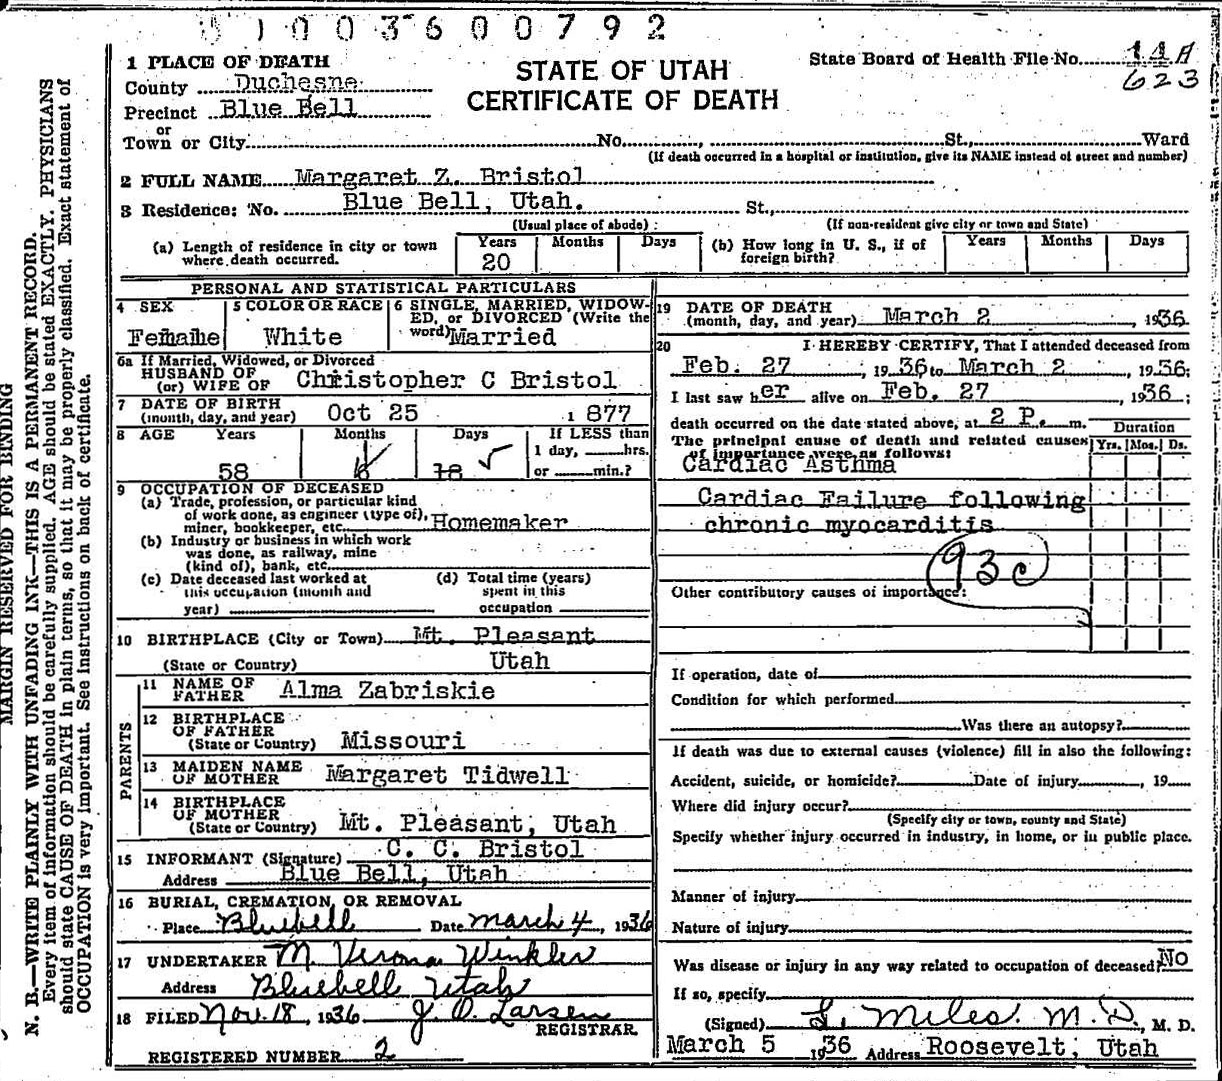 1003600792
1 PLACE OF DEATH
County Duchesne
Precinct Blue Bell
or
Town or City No. St., Ward
(If death occurred in a hospital or institution, give its NAME instead of street and number)
STATE OF UTAH
CERTIFICATE OF DEATH
State Board of Health File No. 14A
623
2 FULL NAME Margaret Z. Bristol
3 Residence: No. Blue Bell, Utah. St.,
(Usual place of abode) (If non-resident give city or town and State)
(a) Length of residence in city or town where death occurred. Years 20 Months Days
(b) How long in U. S., if of foreign birth? Years Months Days
PERSONAL AND STATISTICAL PARTICULARS
4 SEX Female
5 COLOR OR RACE White
6 SINGLE, MARRIED, WIDOWED, or DIVORCED (Write the word) Married
6a If Married, Widowed, or Divorced
HUSBAND OF
(or) WIFE OF Christopher C Bristol
7 DATE OF BIRTH
(month, day, and year) Oct 25 1877
8 AGE Years Months Days If LESS than
58 6 18 1 day, hrs.
or min.?
9 OCCUPATION OF DECEASED
(a) Trade, profession, or particular kind
of work done, as engineer (type of),
miner, bookkeeper, etc. Homemaker
(b) Industry or business in which work
was done, as railway, mine
(kind of), bank, etc.
(c) Date deceased last worked at
this occupation (month and
year)
(d) Total time (years)
spent in this
occupation
10 BIRTHPLACE (City or Town) Mt. Pleasant
(State or Country) Utah
PARENTS
11 NAME OF
FATHER Alma Zabriskie
12 BIRTHPLACE
OF FATHER
(State or Country) Missouri
13 MAIDEN NAME
OF MOTHER Margaret Tidwell
14 BIRTHPLACE
OF MOTHER
(State or Country) Mt. Pleasant, Utah
15 INFORMANT (Signature) C. C. Bristol
Address Blue Bell, Utah
16 BURIAL, CREMATION, OR REMOVAL
Place Bluebell Date March 4, 1936
17 UNDERTAKER M. Verona Winkler
Address Bluebell Utah
18 FILED Nov. 18, 1936 J. O. Larsen
REGISTRAR
REGISTERED NUMBER 2
19 DATE OF DEATH
(month, day, and year) March 2, 1936
20 I HEREBY CERTIFY, That I attended deceased from
Feb. 27, 1936 to March 2, 1936;
I last saw her alive on Feb. 27, 1936;
death occurred on the date stated above, at 2 P. m.
The principal cause of death and related causes
of importance were as follows:
Duration
Yrs. Mos. Ds.
Cardiac Asthma
Cardiac Failure following
chronic myocarditis
93c
Other contributory causes of importance:
If operation, date of
Condition for which performed
Was there an autopsy?
If death was due to external causes (violence) fill in also the following:
Accident, suicide, or homicide? Date of injury, 19
Where did injury occur?
(Specify city or town, county and State)
Specify whether injury occurred in industry, in home, or in public place.
Manner of injury
Nature of injury
Was disease or injury in any way related to occupation of deceased? No
If so, specify
(Signed) L. Miles. M. D., M. D.
March 5 1936 Address Roosevelt, Utah
MARGIN RESERVED FOR BINDING
N. B.—WRITE PLAINLY WITH UNFADING INK—THIS IS A PERMANENT RECORD.
Every item of information should be carefully supplied. AGE should be stated EXACTLY. PHYSICIANS
should state CAUSE OF DEATH in plain terms, so that it may be properly classified. Exact statement of
OCCUPATION is very important. See instructions on back of certificate.